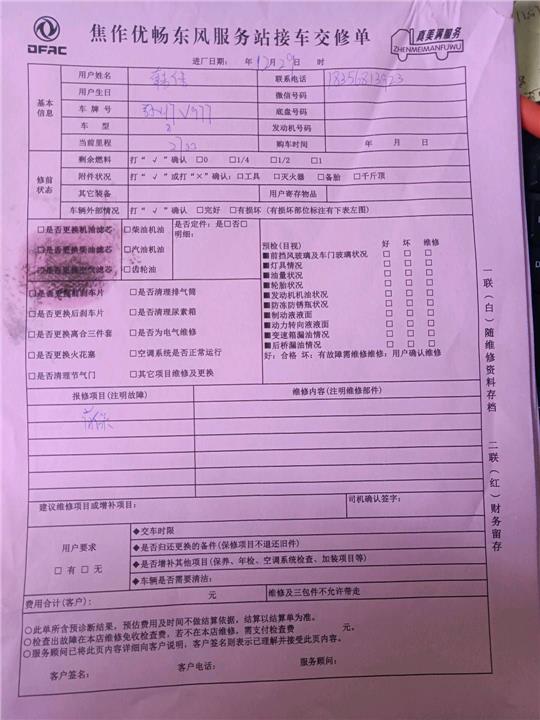 DFAC
焦作优畅东风服务站接车交修单
真美满服务
ZHENMEIMANFUWU
进厂日期: 年 12 月 29 日 时
基本信息
用户姓名 联系电话 18356813923
用户生日 微信号码
车牌号 底盘号码
车型 发动机号码
当前里程 2700 购车时间 年 月 日
修前状态
剩余燃料 打“√”确认 □0 □1/4 □1/2 □1
附件状况 打“√”或打“×”确认:□工具 □灭火器 □备胎 □千斤顶
其它装备 用户寄存物品
车辆外部情况 打“√”确认 □完好 □有损坏(有损坏部位标注右下表左图)
□是否更换机油滤芯 □柴油机油 是否定件:是□否□
□是否更换柴油滤芯 □汽油机油 明细:
□是否更换空气滤芯 □齿轮油
□是否更换前刹车片 □是否清理排气筒
□是否更换后刹车片 □是否清理尿素箱
□是否更换离合三件套 □是否为电气维修
□是否更换火花塞 □空调系统是否正常运行
□是否清理节气门 □其它项目维修及更换
预检(目视) 好 坏 维修
■前挡风玻璃及车门玻璃状况 □ □ □
■灯具情况 □ □ □
■油量状况 □ □ □
■轮胎状况 □ □ □
■发动机机油状况 □ □ □
■防冻防锈瓶状况 □ □ □
■制动液液面 □ □ □
■动力转向液液面 □ □ □
■变速箱漏油情况 □ □ □
■后桥漏油情况 □ □ □
好:合格 坏:有故障需维修维修:用户确认维修
报修项目(注明故障) 维修内容(注明维修部件)
建议维修项目或增补项目: 司机确认签字:
用户要求
□有 □无
◆交车时限
◆是否归还更换的备件(保修项目不退还旧件)
◆是否增补其他项目(保养、年检、空调系统检查、加装项目等)
◆车辆是否需要清洁:
费用合计(客户): 元 维修及三包件不允许带走
○此单所含预诊断结果,预估费用及时间不做结算依据,结算以结算单为准。
○检查出故障在本店维修免收检查费,若不在本店维修,需支付检查费 元。
○服务顾问已将此页内容详细向客户说明,客户签名则表示已理解并接受此页内容。
客户签名: 客户电话: 服务顾问:
一联(白)随维修资料存档 二联(红)财务留存